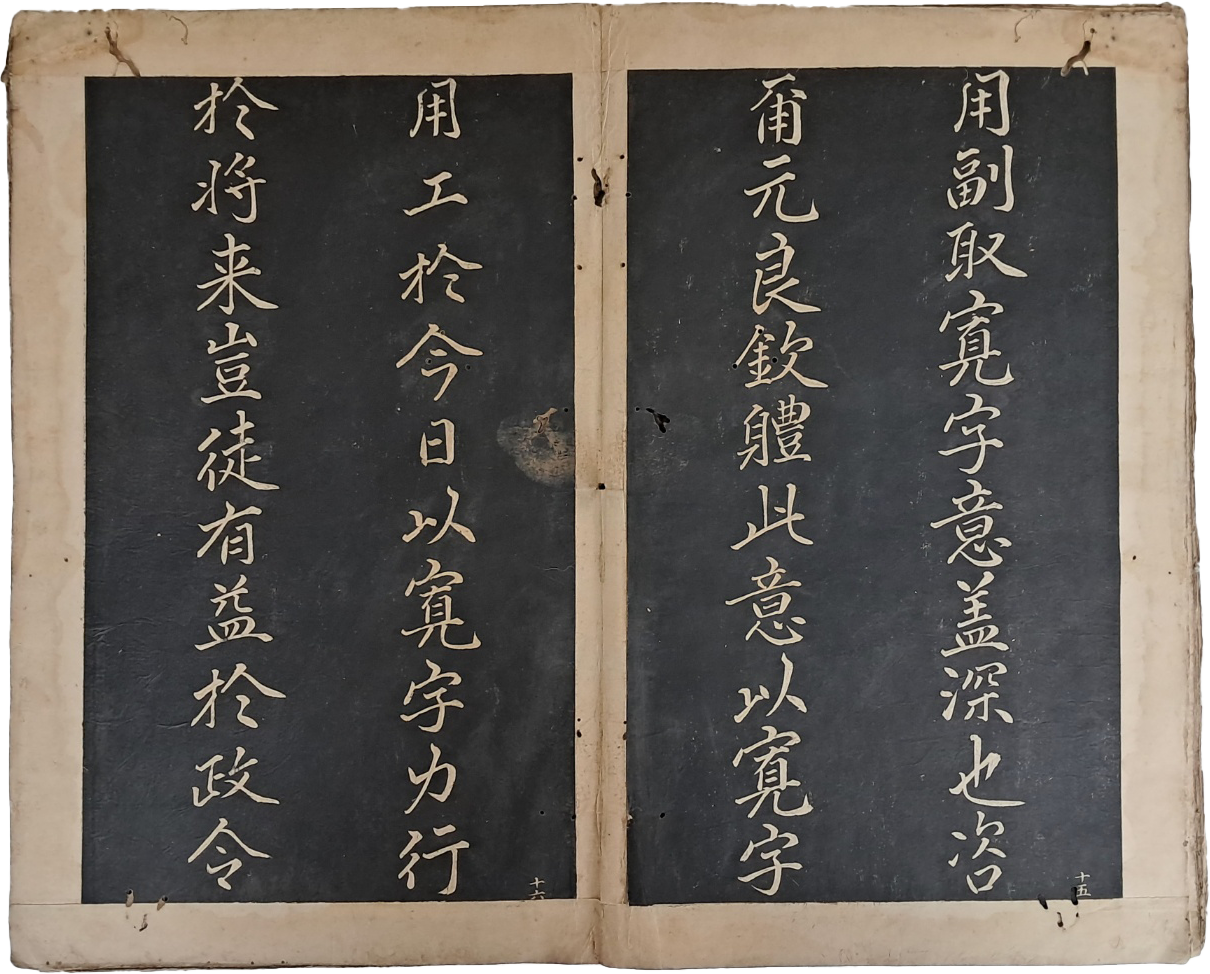 用副取寛字意盖深也咨
爾元良欽體此意以寛字
十五
用工於今日以寛字力行
於将来豈徒有益於政令
十六